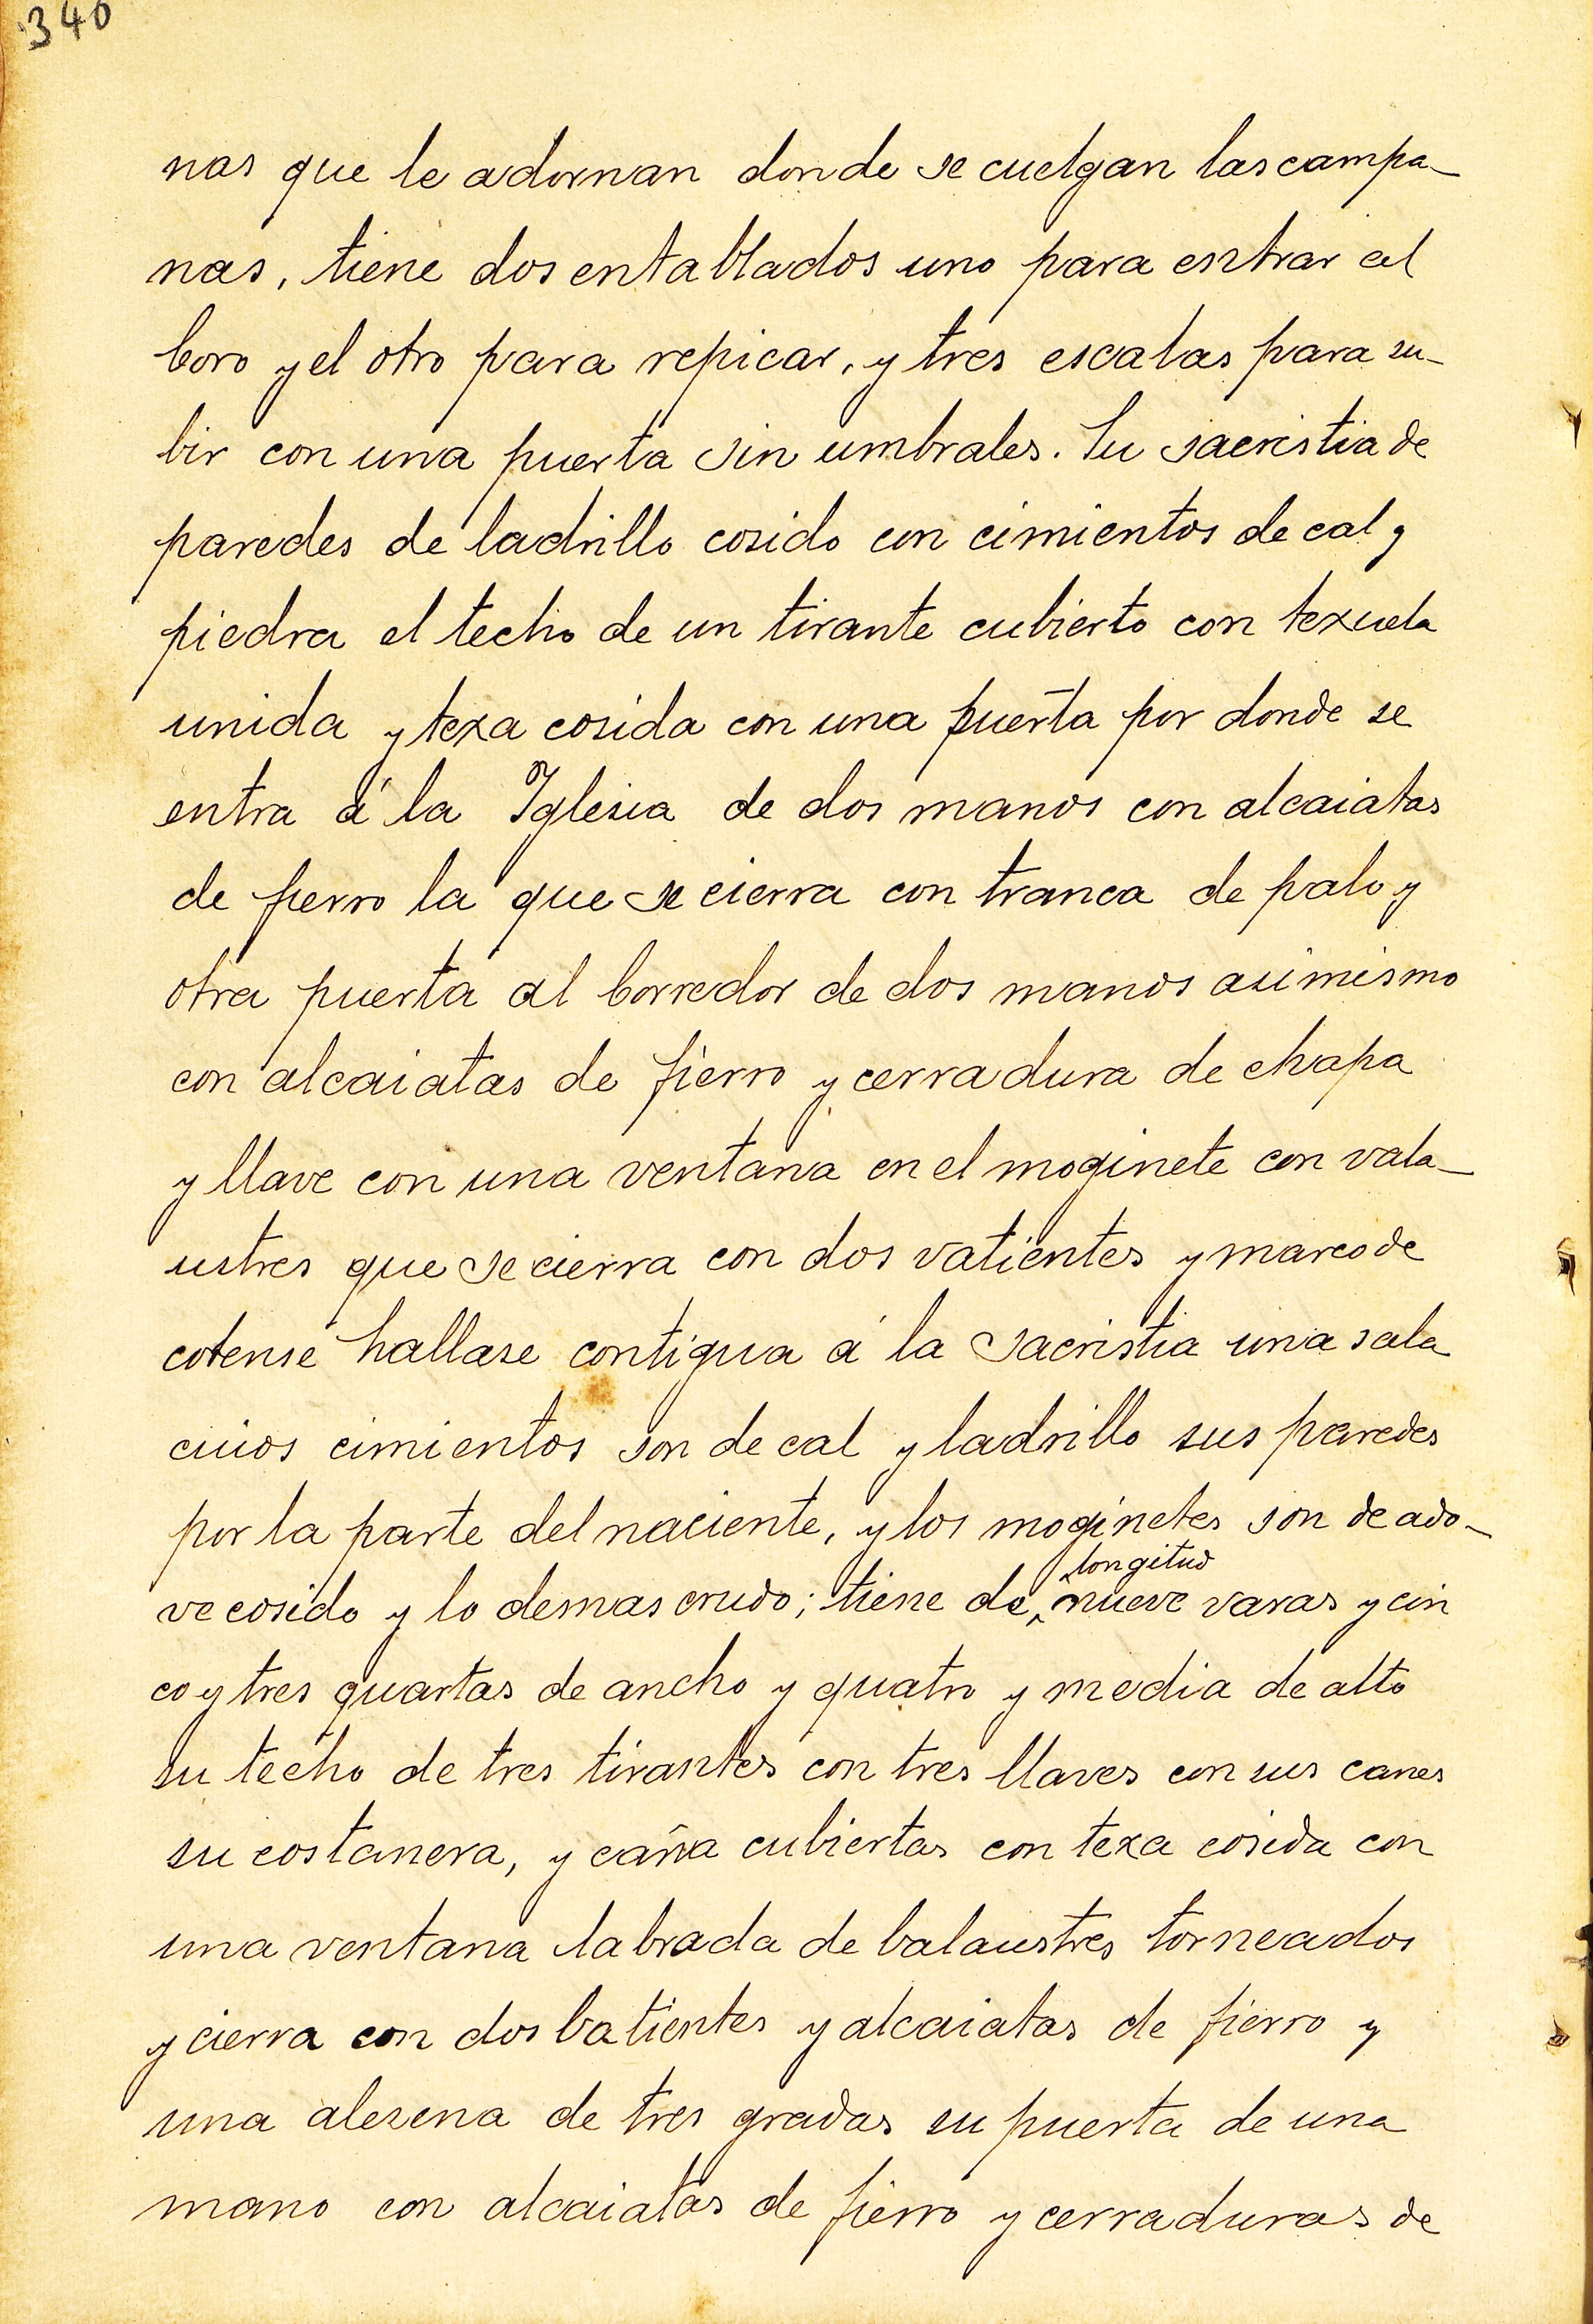 346
nas que le adornan donde se cuelgan las campa-
nas, tiene dos entablados uno para entrar al
Coro y el otro para repicar, y tres escalas para su-
bir con una puerta sin umbrales. Su sacristia de
paredes de ladrillo cosido con cimientos de cal y
piedra el techo de un tirante cubierto con texuela
unida y texa cosida con una puerta por donde se
entra á la Iglesia de dos manos con alcaiatas
de fierro la que se cierra con tranca de palo y
otra puerta al Corredor de dos manos asi mismo
con alcaiatas de fierro y cerradura de chapa
y llave con una ventana en el moginete con vala-
ustres que se cierra con dos vatientes y marco de
cotense hallase contigua á la sacristia una sala
cuios cimientos son de cal y ladrillo sus paredes
por la parte del naciente, y los moginetes son de ado-
ve cosido y lo demas crudo; tiene de longitud nueve varas y cin
co y tres quartas de ancho y quatro y media de alto
su techo de tres tirantes con tres llaves con sus canes
su costanera, y caña cubiertas con texa cosida con
una ventana labrada de balaustres torneados
y cierra con dos batientes y alcaiatas de fierro y
una alesena de tres gradas su puerta de una
mano con alcaiatas de fierro y cerraduras de